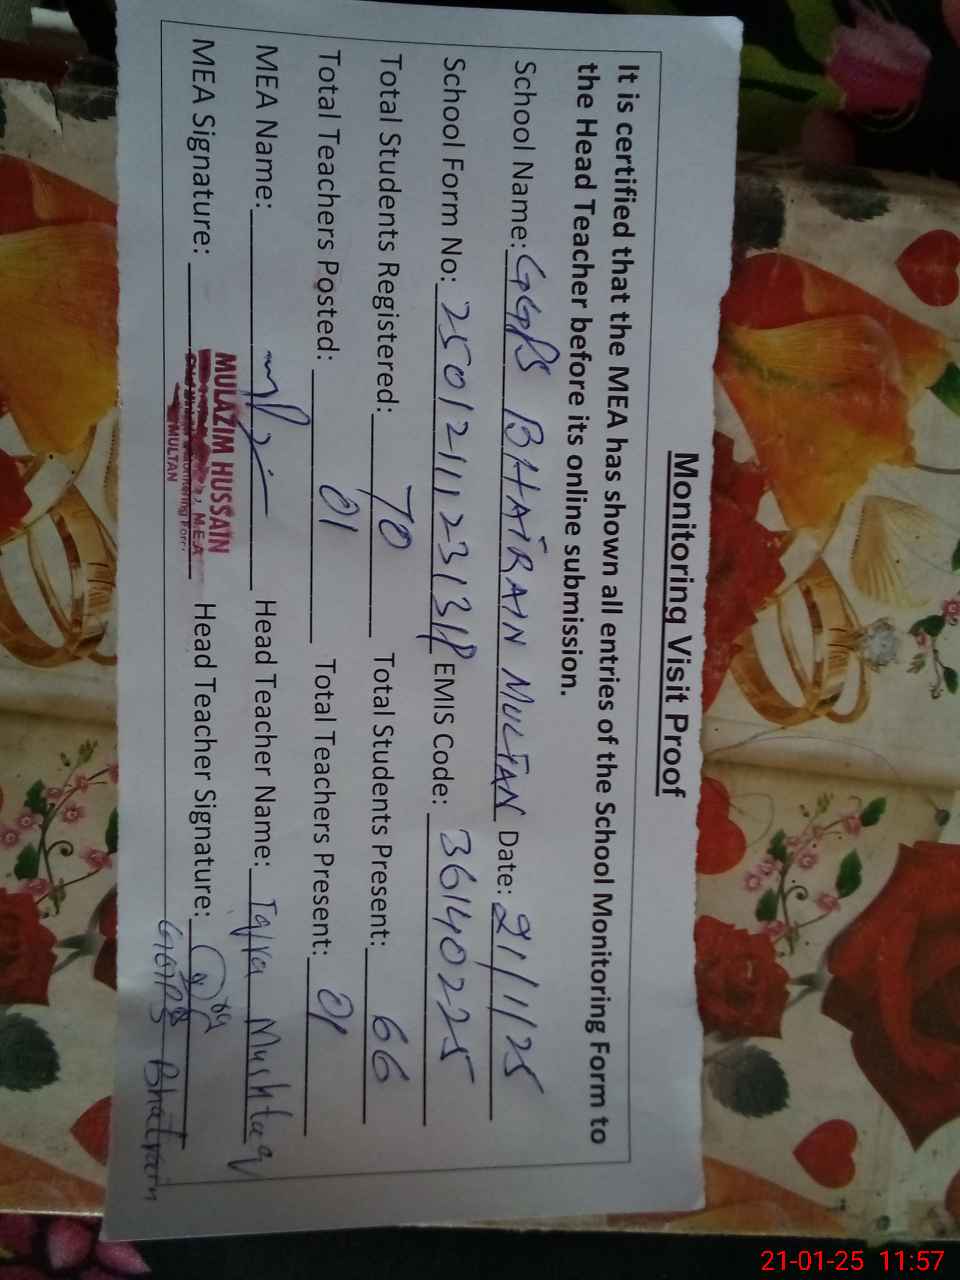 Monitoring Visit Proof
It is certified that the MEA has shown all entries of the School Monitoring Form to
the Head Teacher before its online submission.
School Name: GGPS BHATRAIN MULTAN Date: 21/1/25
School Form No: EMIS Code: 36140225
Total Students Registered: 70 Total Students Present: 66
Total Teachers Posted: 01 Total Teachers Present: 01
MEA Name: Head Teacher Name: Iqra Mushtaq
MEA Signature: Head Teacher Signature:
MULAZIM HUSSAIN
M.E.A
MULTAN
GGPS Bhatrain
21-01-25 11:57